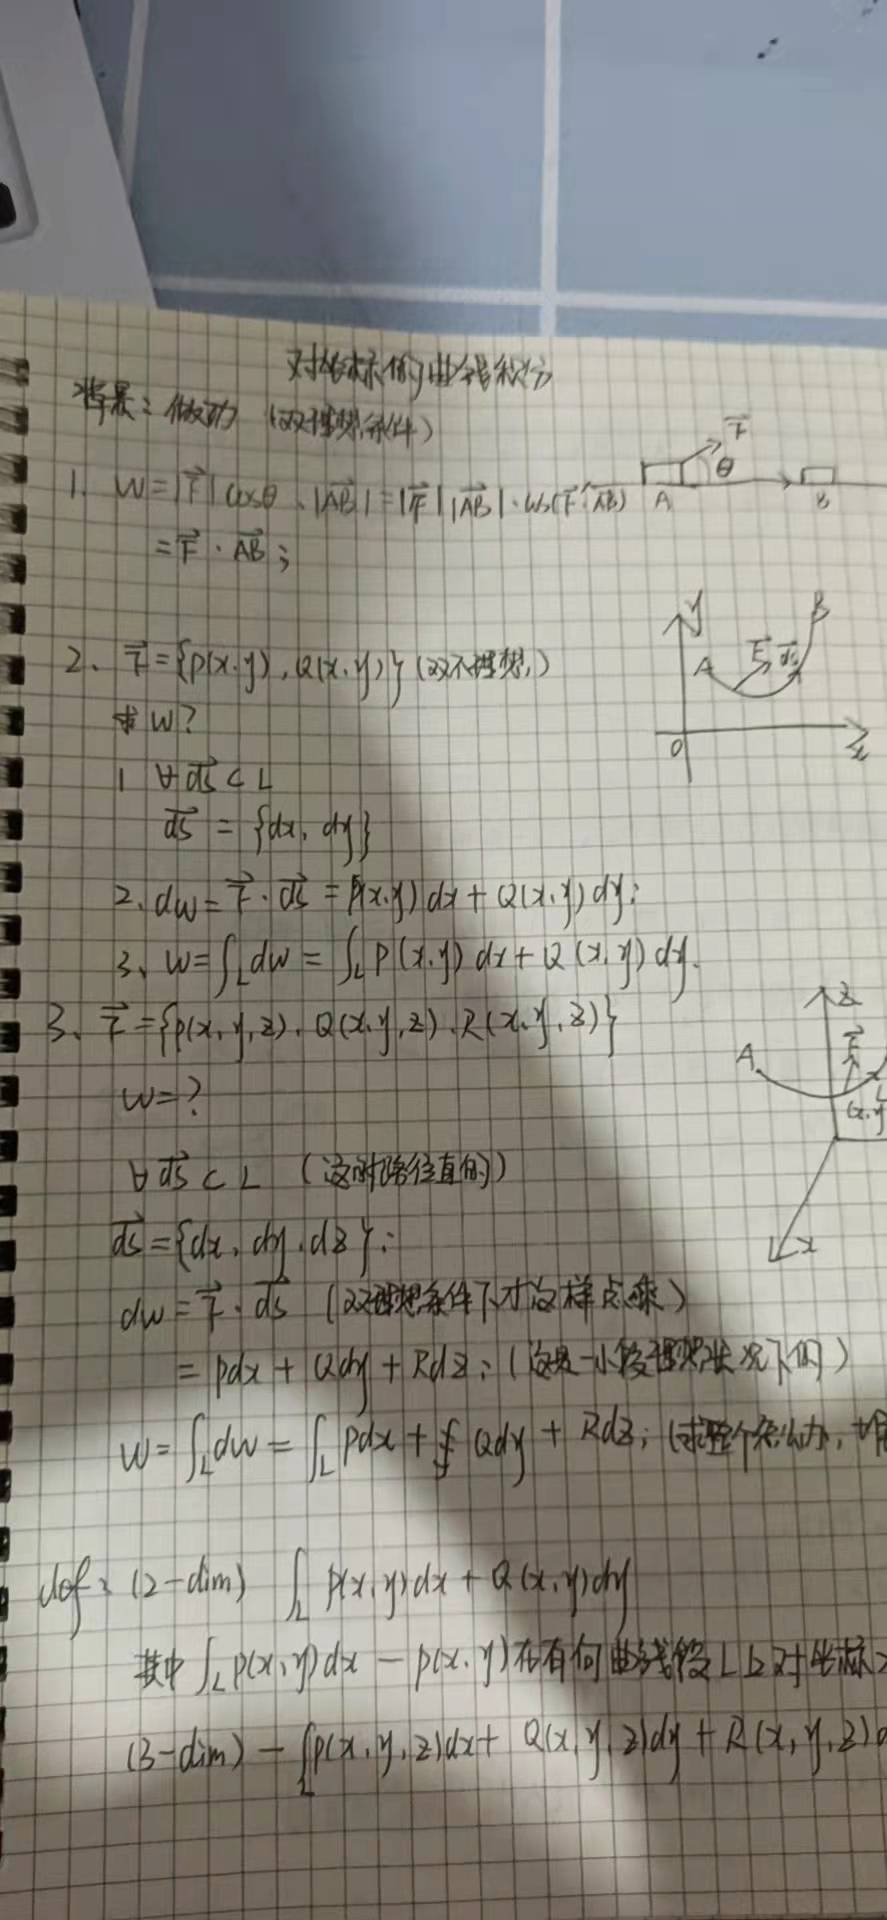 对坐标的曲线积分
背景: 做功 (双理想条件)
1. W=|F⃗|cosθ·|AB⃗|=|F⃗||AB⃗|·cos(F⃗^AB⃗)
F⃗ θ A B
=F⃗·AB⃗;
2、F⃗={P(x,y),Q(x,y)}(双不理想,)
y B A F⃗ ds⃗ O x
求W?
1 ∀ds⃗⊂L
ds⃗={dx,dy}
2、dw=F⃗·ds⃗=P(x,y)dx+Q(x,y)dy;
3、W=∫_L dw=∫_L P(x,y)dx+Q(x,y)dy.
3、F⃗={P(x,y,z),Q(x,y,z),R(x,y,z)}
z A F⃗ L (x,y x
W=?
∀ds⃗⊂L (这时路径直的)
ds⃗={dx,dy,dz};
dw=F⃗·ds⃗ (双理想条件下才这样点乘)
=Pdx+Qdy+Rdz;(这是一小段理想状况下的)
W=∫_L dw=∫_L Pdx+Qdy+Rdz;(求整个怎么办,
def: (2-dim) ∫_L P(x,y)dx+Q(x,y)dy
其中∫_L P(x,y)dx—P(x,y)在有向曲线段L上对坐标x
(3-dim)—∫_L P(x,y,z)dx+Q(x,y,z)dy+R(x,y,z)d